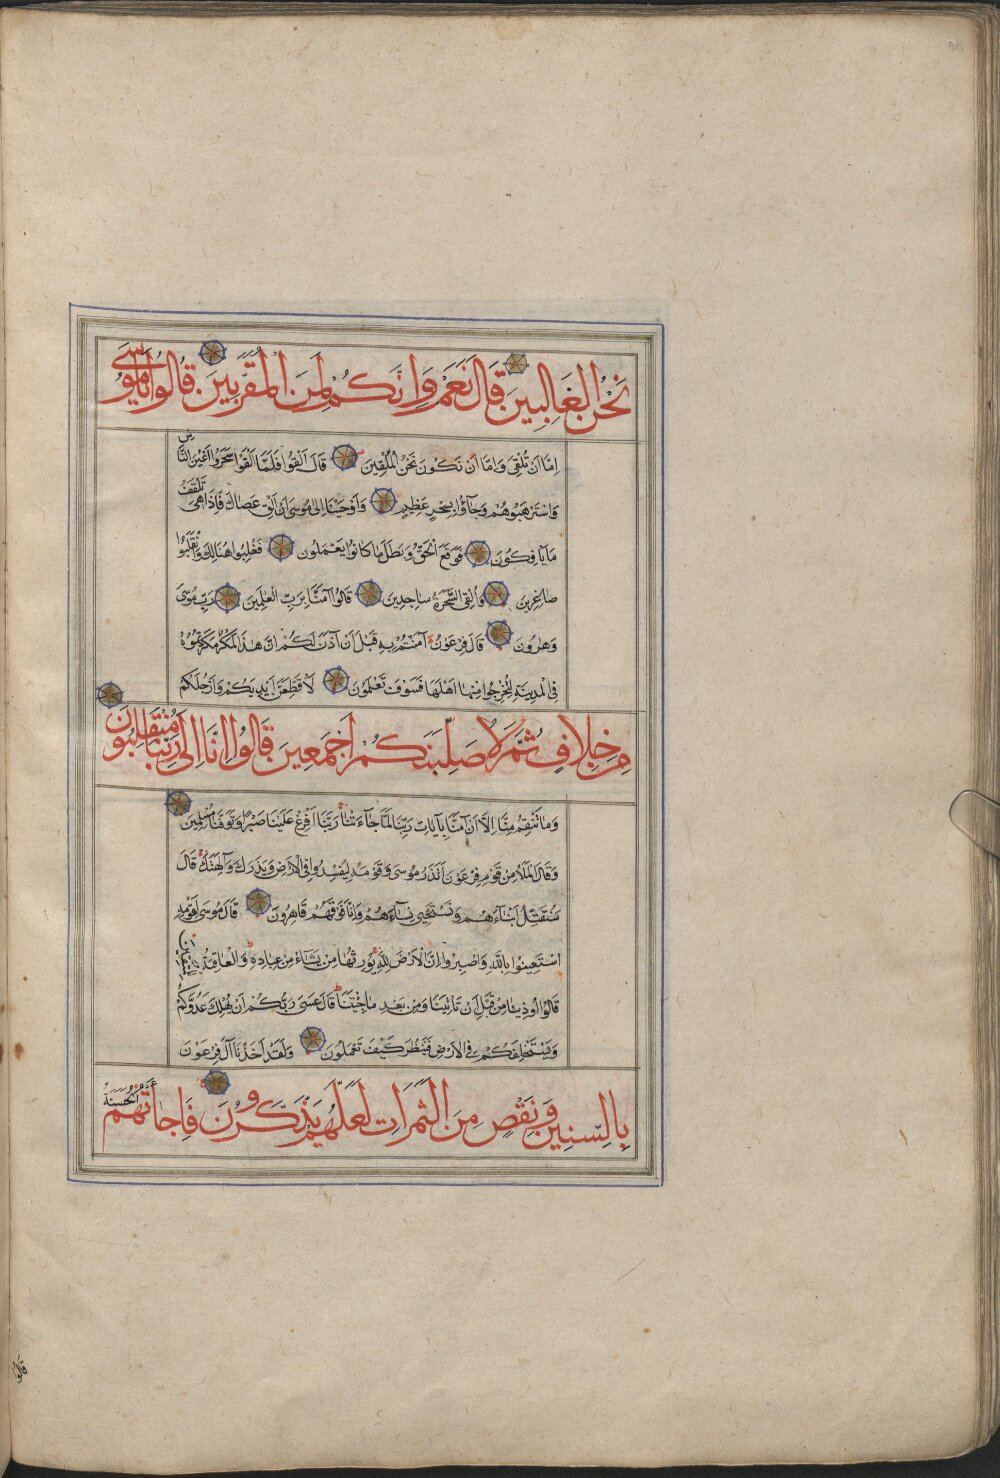 نَحْنُ الْغَالِبِينَ قَالَ نَعَمْ وَاِنَّكُمْ لَمِنَ الْمُقَرَّبِينَ قَالُوا يَامُوسَى
اِمَّا اَنْ تُلْقِيَ وَاِمَّا اَنْ نَكُونَ نَحْنُ الْمُلْقِينَ قَالَ اَلْقُوا فَلَمَّا اَلْقَوْا سَحَرُوا اَعْيُنَ النَّاسِ
وَاسْتَرْهَبُوهُمْ وَجَآؤُا بِسِحْرٍ عَظِيمٍ وَاَوْحَيْنَا اِلَى مُوسَى اَنْ اَلْقِ عَصَاكَ فَاِذَا هِيَ تَلْقَفُ
مَا يَاْفِكُونَ فَوَقَعَ الْحَقُّ وَبَطَلَ مَا كَانُوا يَعْمَلُونَ فَغُلِبُوا هُنَالِكَ وَانْقَلَبُوا
صَاغِرِينَ وَاُلْقِيَ السَّحَرَةُ سَاجِدِينَ قَالُوا آمَنَّا بِرَبِّ الْعٰلَمِينَ رَبِّ مُوسَى
وَهٰرُونَ قَالَ فِرْعَوْنُ آمَنْتُمْ بِهِ قَبْلَ اَنْ آذَنَ لَكُمْ اِنَّ هٰذَا لَمَكْرٌ مَكَرْتُمُوهُ
فِي الْمَدِينَةِ لِتُخْرِجُوا مِنْهَا اَهْلَهَا فَسَوْفَ تَعْلَمُونَ لَاُقَطِّعَنَّ اَيْدِيَكُمْ وَاَرْجُلَكُمْ
مِنْ خِلَافٍ ثُمَّ لَاُصَلِّبَنَّكُمْ اَجْمَعِينَ قَالُوا اِنَّا اِلَى رَبِّنَا مُنْقَلِبُونَ
وَمَا تَنْقِمُ مِنَّا اِلَّا اَنْ آمَنَّا بِآيَاتِ رَبِّنَا لَمَّا جَآءَتْنَا رَبَّنَا اَفْرِغْ عَلَيْنَا صَبْرًا وَتَوَفَّنَا مُسْلِمِينَ
وَقَالَ الْمَلَاُ مِنْ قَوْمِ فِرْعَوْنَ اَتَذَرُ مُوسَى وَقَوْمَهُ لِيُفْسِدُوا فِي الْاَرْضِ وَيَذَرَكَ وَآلِهَتَكَ قَالَ
سَنُقَتِّلُ اَبْنَآءَهُمْ وَنَسْتَحْيِي نِسَآءَهُمْ وَاِنَّا فَوْقَهُمْ قَاهِرُونَ قَالَ مُوسَى لِقَوْمِهِ
اسْتَعِينُوا بِاللّٰهِ وَاصْبِرُوا اِنَّ الْاَرْضَ لِلّٰهِ يُورِثُهَا مَنْ يَشَآءُ مِنْ عِبَادِهِ وَالْعَاقِبَةُ لِلْمُتَّقِينَ
قَالُوا اُوذِينَا مِنْ قَبْلِ اَنْ تَاْتِيَنَا وَمِنْ بَعْدِ مَا جِئْتَنَا قَالَ عَسَى رَبُّكُمْ اَنْ يُهْلِكَ عَدُوَّكُمْ
وَيَسْتَخْلِفَكُمْ فِي الْاَرْضِ فَيَنْظُرَ كَيْفَ تَعْمَلُونَ وَلَقَدْ اَخَذْنَا آلَ فِرْعَوْنَ
بِالسِّنِينَ وَنَقْصٍ مِنَ الثَّمَرَاتِ لَعَلَّهُمْ يَذَّكَّرُونَ فَاِذَا جَآءَتْهُمُ الْحَسَنَةُ
قَالُوا